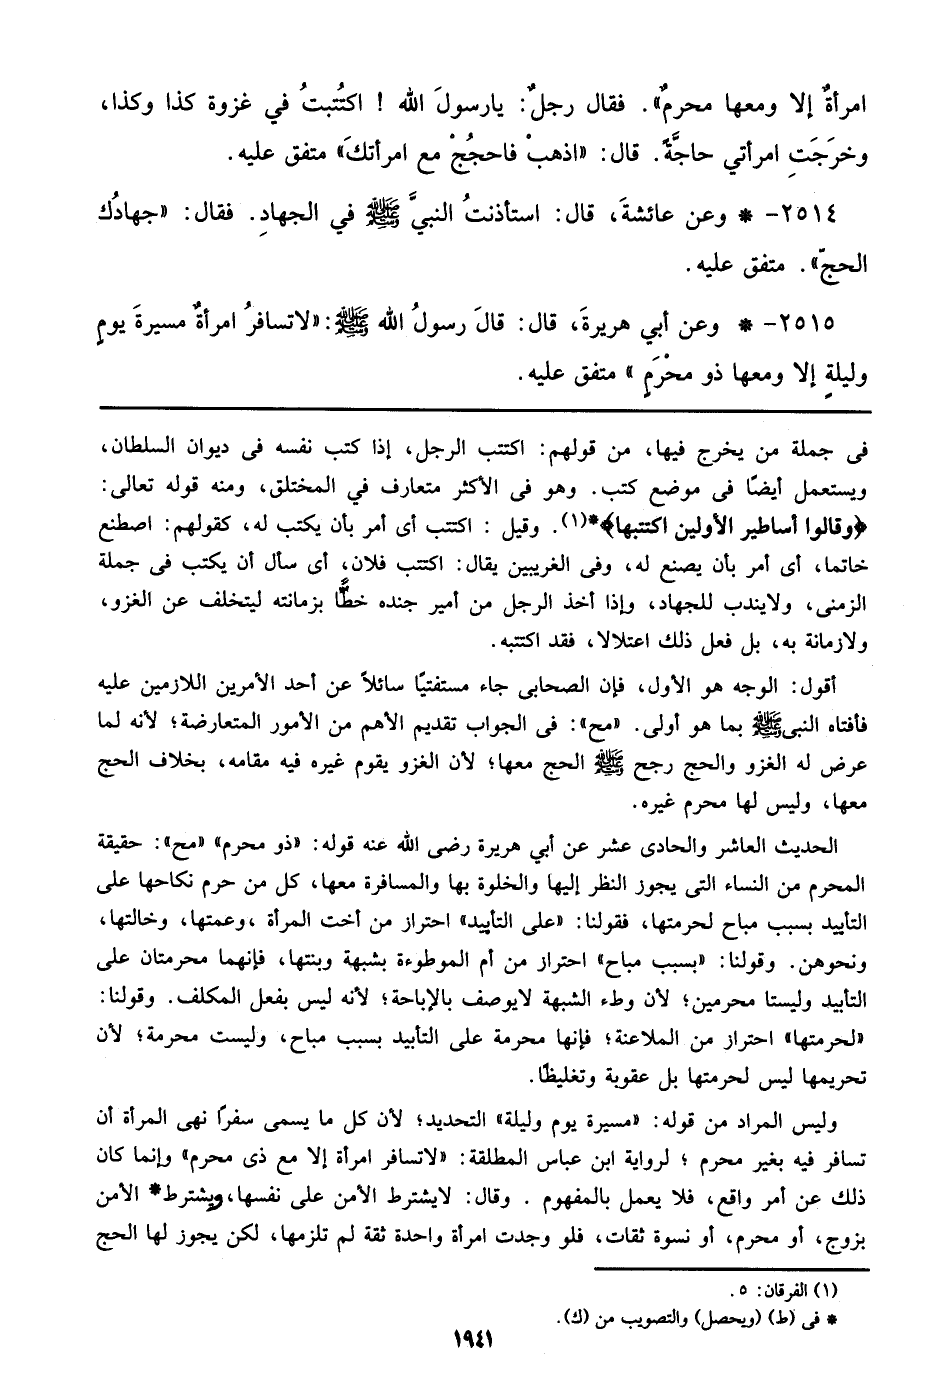 امرأةٌ إلا ومعها محرمٌ». فقال رجلٌ: يارسولَ الله ! اكتُتبتُ في غزوة كذا وكذا،
وخرَجَتِ امرأتي حاجَّةً. قال: «اذهبْ فاحجُجْ مع امرأتكَ» متفق عليه.
٢٥١٤- * وعن عائشةَ، قال: استأذنتُ النبيَّ ﷺ في الجهادِ. فقال: «جهادُك
الحجّ». متفق عليه.
٢٥١٥- * وعن أبي هريرةَ، قال: قالَ رسولُ الله ﷺ: «لاتسافرُ امرأةٌ مسيرةَ يومٍ
وليلةٍ إلا ومعها ذو محْرَمٍ » متفق عليه.
فى جملة من يخرج فيها، من قولهم: اكتتب الرجل، إذا كتب نفسه فى ديوان السلطان،
ويستعمل أيضًا فى موضع كتب. وهو فى الأكثر متعارف في المختلق، ومنه قوله تعالى:
﴿وقالوا أساطير الأولين اكتتبها﴾*(١). وقيل : اكتتب أى أمر بأن يكتب له، كقولهم: اصطنع
خاتما، أى أمر بأن يصنع له، وفى الغريبين يقال: اكتتب فلان، أى سأل أن يكتب فى جملة
الزمنى، ولايندب للجهاد، وإذا أخذ الرجل من أمير جنده خطًّا بزمانته ليتخلف عن الغزو،
ولازمانة به، بل فعل ذلك اعتلالا، فقد اكتتبه.
أقول: الوجه هو الأول، فإن الصحابى جاء مستفتيًا سائلاً عن أحد الأمرين اللازمين عليه
فأفتاه النبى ﷺ بما هو أولى. «مح»: فى الجواب تقديم الأهم من الأمور المتعارضة؛ لأنه لما
عرض له الغزو والحج رجح ﷺ الحج معها؛ لأن الغزو يقوم غيره فيه مقامه، بخلاف الحج
معها، وليس لها محرم غيره.
الحديث العاشر والحادى عشر عن أبي هريرة رضى الله عنه قوله: «ذو محرم» «مح»: حقيقة
المحرم من النساء التى يجوز النظر إليها والخلوة بها والمسافرة معها، كل من حرم نكاحها على
التأييد بسبب مباح لحرمتها، فقولنا: «على التأييد» احتراز من أخت المرأة ،وعمتها، وخالتها،
ونحوهن. وقولنا: «بسبب مباح» احتراز من أم الموطوءة بشبهة وبنتها، فإنهما محرمتان على
التأييد وليستا محرمين؛ لأن وطء الشبهة لايوصف بالإباحة؛ لأنه ليس بفعل المكلف. وقولنا:
«لحرمتها» احتراز من الملاعنة؛ فإنها محرمة على التأييد بسبب مباح، وليست محرمة؛ لأن
تحريمها ليس لحرمتها بل عقوبة وتغليظًا.
وليس المراد من قوله: «مسيرة يوم وليلة» التحديد؛ لأن كل ما يسمى سفرًا نهى المرأة أن
تسافر فيه بغير محرم ؛ لرواية ابن عباس المطلقة: «لاتسافر امرأة إلا مع ذى محرم» وإنما كان
ذلك عن أمر واقع، فلا يعمل بالمفهوم . وقال: لايشترط الأمن على نفسها، ويشترط* الأمن
بزوج، أو محرم، أو نسوة ثقات، فلو وجدت امرأة واحدة ثقة لم تلزمها، لكن يجوز لها الحج
(١) الفرقان: ٥.
* فى (ط) (ويحصل) والتصويب من (ك).
١٩٤١